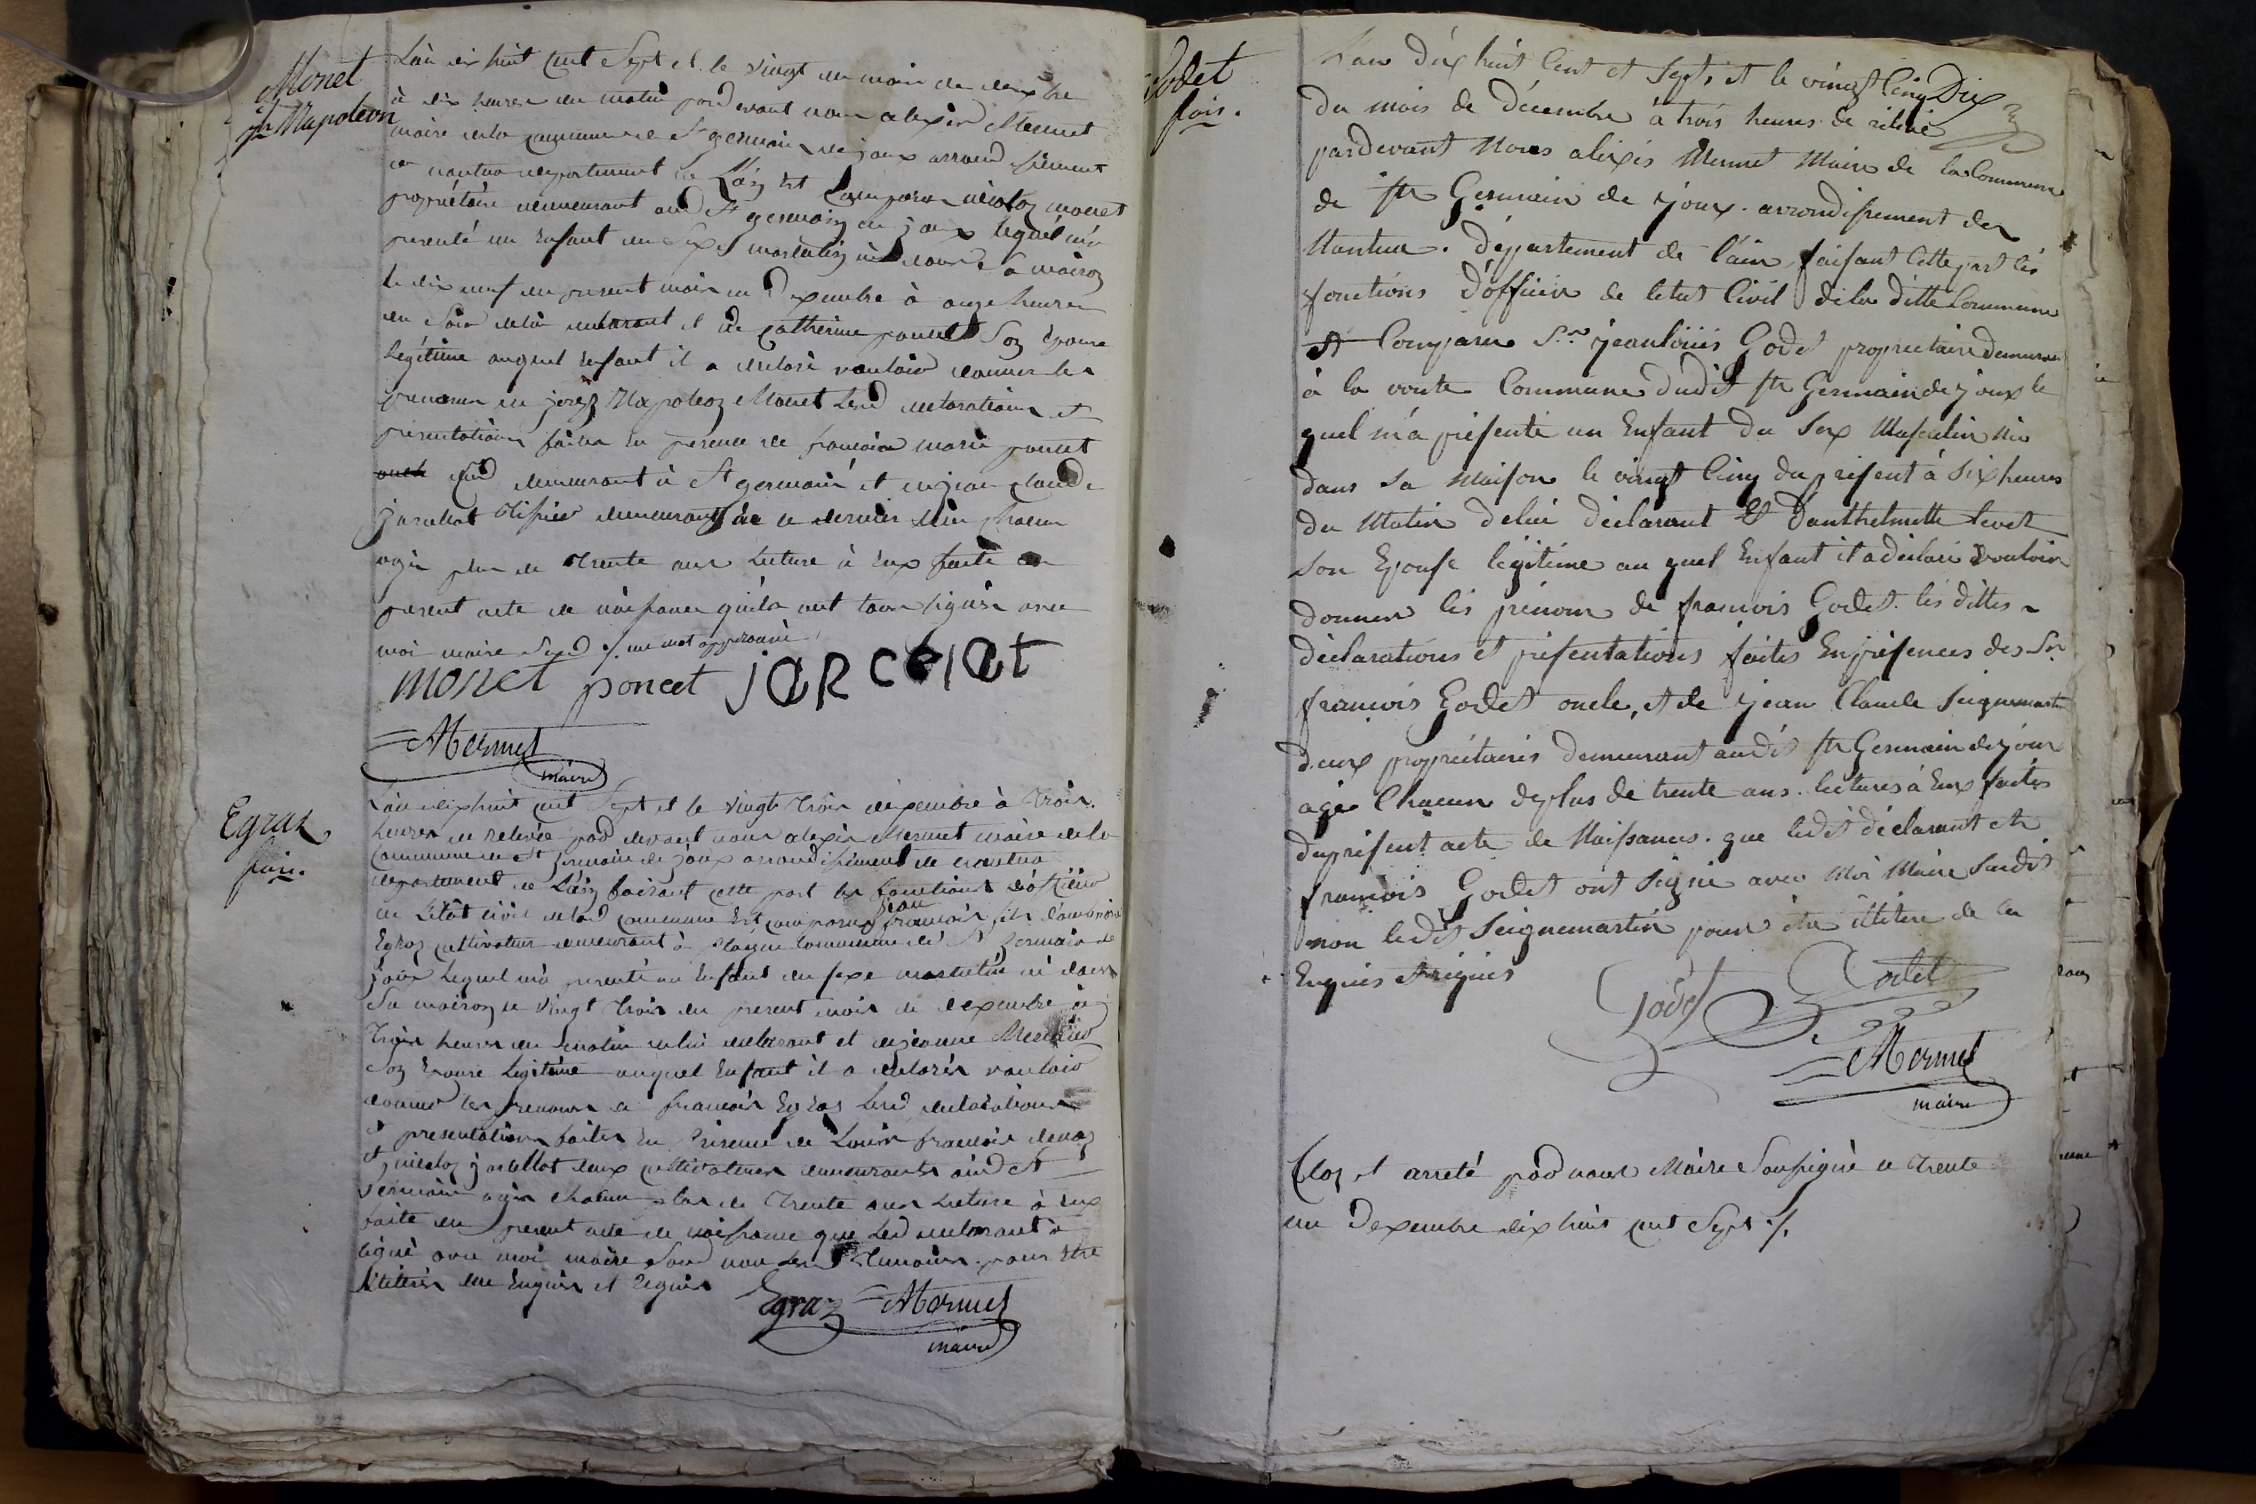 Monet
jh Napoleon
L'an dix huit cent Sept et le vingt du mois de dexbre
à dix heures du matin pard devant nous alexis Mermet
maire de la commune de St germain de joux arrondissement
de nantua departement de L'ain Est Comparu nicolas monet
propriétaire demeurant aud St germain de joux lequel m'a
presenté un Enfant du Sexe masculin né dans Sa maison
le dix neuf du present mois de dexembre à onze heures
du Soir de lui declarant et de Catherine poncet Son Epouse
Legitime auquel Enfant il a declaré vouloir donner les
prenoms de joseph Napoleon Monet Lesd declarations et
présentations faites En presence de francois marie poncet
demeurant à St germain et de jean claude
jarcelat demeurant de ce dernier Lieu chacun
agés plus de trente ans Lecture à Eux faite du
present acte de naissance qu'ils ont tous signés avec
moi maire Susd ./. un mot approuvé
monet poncet jarcelat
Mermet
maire
Egraz
fois.
L'an dix huit cent Sept et le vingt trois dexembre à trois
heures de relevée pard devant nous alexis Mermet maire de la
commune de St germain de joux arrondissement de nantua
departement de L'ain faisant cette part les fonctions d'officier
de L'état civil de lad commune Est comparu jean francois fils d'ambroise
Egraz cultivateur demeurant à plagne commune de St Germain de
joux Lequel m'a presenté un Enfant du sexe masculin né dans
Sa maison le vingt trois du present mois de dexembre à
trois heures du matin de lui declarant et de jeanne Mermet
Son Epouse Legitime auquel Enfant il a declaré vouloir
donner les prenoms de francois Egraz Lesd declarations
et presentations faites En Presence de Louis francois
et nicolas jarcellot deux cultivateurs demeurants aud St
Germain agés chacun plus de trente ans Lecture à Eux
faite du present acte de naissance que Led declarant a
signé avec moi maire Susd non Les temoins pour être
illitérés de Enquis et Requis
Egraz Mermet
maire
Godet
fois.
L'an dix huit Cent et Sept, et le vingt Cinq Dix
du mois de décembre à trois heures de relevé
pardevant Nous aléxis Mermet Maire de la Commune
de St Germain de joux. arrondissement de
Nantua. département de l'ain, faisant Cette part lés
fonctions d'officier de létat Civil de la ditte Commune
Et Comparu Sr jeanloüis Godet proprietaire demeurant
à la voute Commune dudit St Germain de joux le
quel m'a présenté un Enfant du Sex Masculin Né
dans Sa Maison le vingt Cinq du présent à Six heures
du Matin de lui déclarant Et d'anthelmette levet
Son Epouse légitime au quel Enfant il a déclaré vouloir
donner lés prénoms de francois Godet. lés dittes
déclarations et présentations faites En présences des Srs
francois Godet oncle, et de jean Claude Seignemartin
deux propriétaires demeurant audit St Germain de joux
agé Chacun deplus de trente ans. lectures à Eux faites
du présent acte de Naissances. que ledit déclarant et
francois Godet ont Signé avec Moi Maire Susdit
non ledit Seignemartin pour être illitere de ce
Enquis et requis
Godet Godet
Mermet
maire
Clos et arreté pard nous Maire Soussigné ce trente
un Dexembre dix huit cent Sept ./.